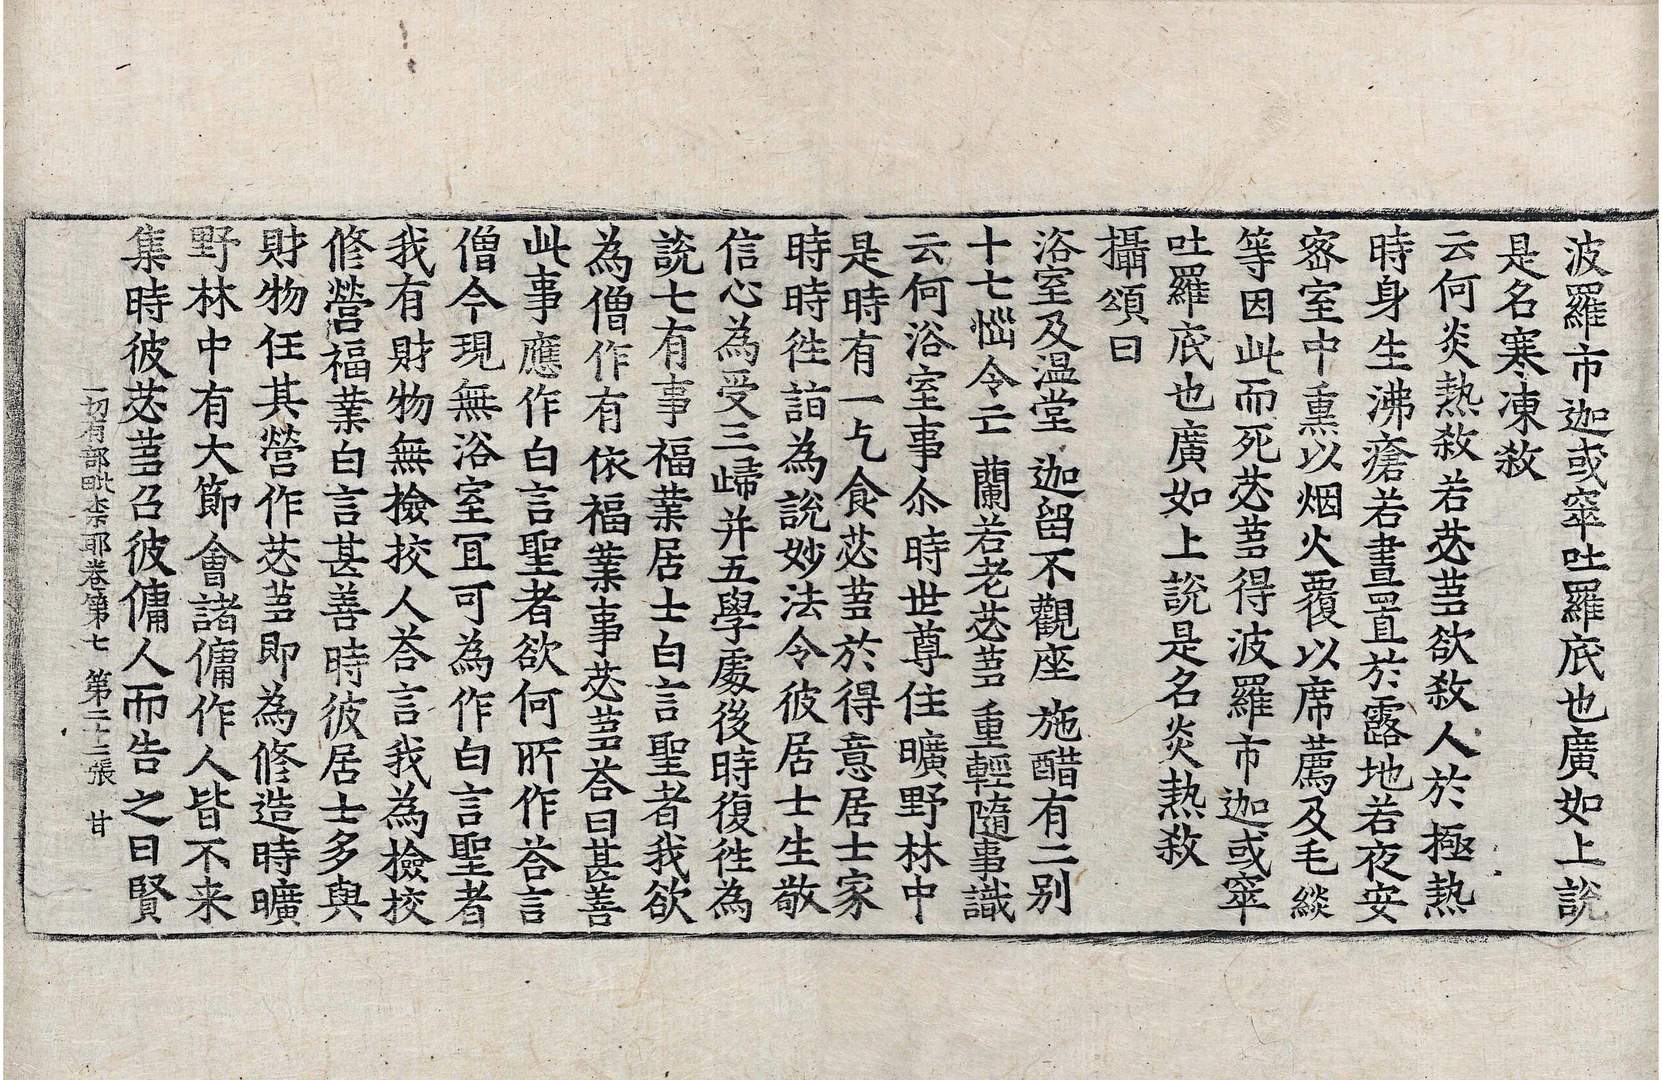 波羅市迦或窣吐羅底也廣如上說
是名寒凍殺
云何炎熱殺若苾芻欲殺人於極熱
時身生沸瘡若晝置於露地若夜安
密室中熏以烟火覆以席薦及毛緂
等因此而死苾芻得波羅市迦或窣
吐羅底也廣如上說是名炎熱殺
攝頌曰
浴室及温堂 迦留不觀座 施醋有二別
十七惱令亡 蘭若老苾芻 重輕隨事識
云何浴室事尒時世尊住曠野林中
是時有一乞食苾芻於得意居士家
時時徃詣為說妙法令彼居士生敬
信心為受三歸并五學處後時復徃為
說七有事福業居士白言聖者我欲
為僧作有依福業事苾芻荅曰甚善
此事應作白言聖者欲何所作荅言
僧今現無浴室冝可為作白言聖者
我有財物無撿挍人荅言我為撿挍
修營福業白言甚善時彼居士多與
財物任其營作苾芻即為修造時曠
野林中有大節會諸傭作人皆不来
集時彼苾芻召彼傭人而告之曰賢
一切有部毗柰耶卷第七 第二十二張 甘